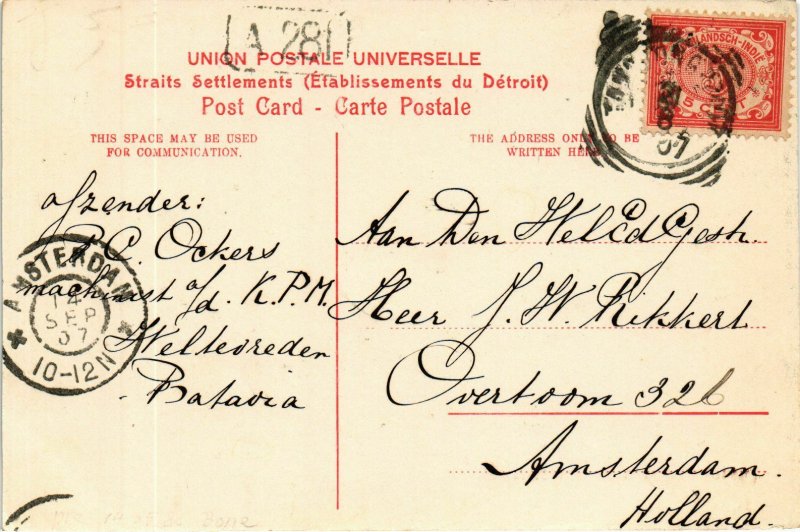 A 281
UNION POSTALE UNIVERSELLE
Straits Settlements (Établissements du Détroit)
Post Card - Carte Postale
THIS SPACE MAY BE USED
FOR COMMUNICATION.
THE ADDRESS ONLY TO BE
WRITTEN HERE
afzender:
P.C. Ockers
machinist a/d. K.P.M.
Weltevreden
Batavia
AMSTERDAM
4
SEP
07
10-12N
Aan Den WelEd Gestr.
Heer J. W. Rikkert
Overtoom 326
Amsterdam.
Holland.
5 CENT
07